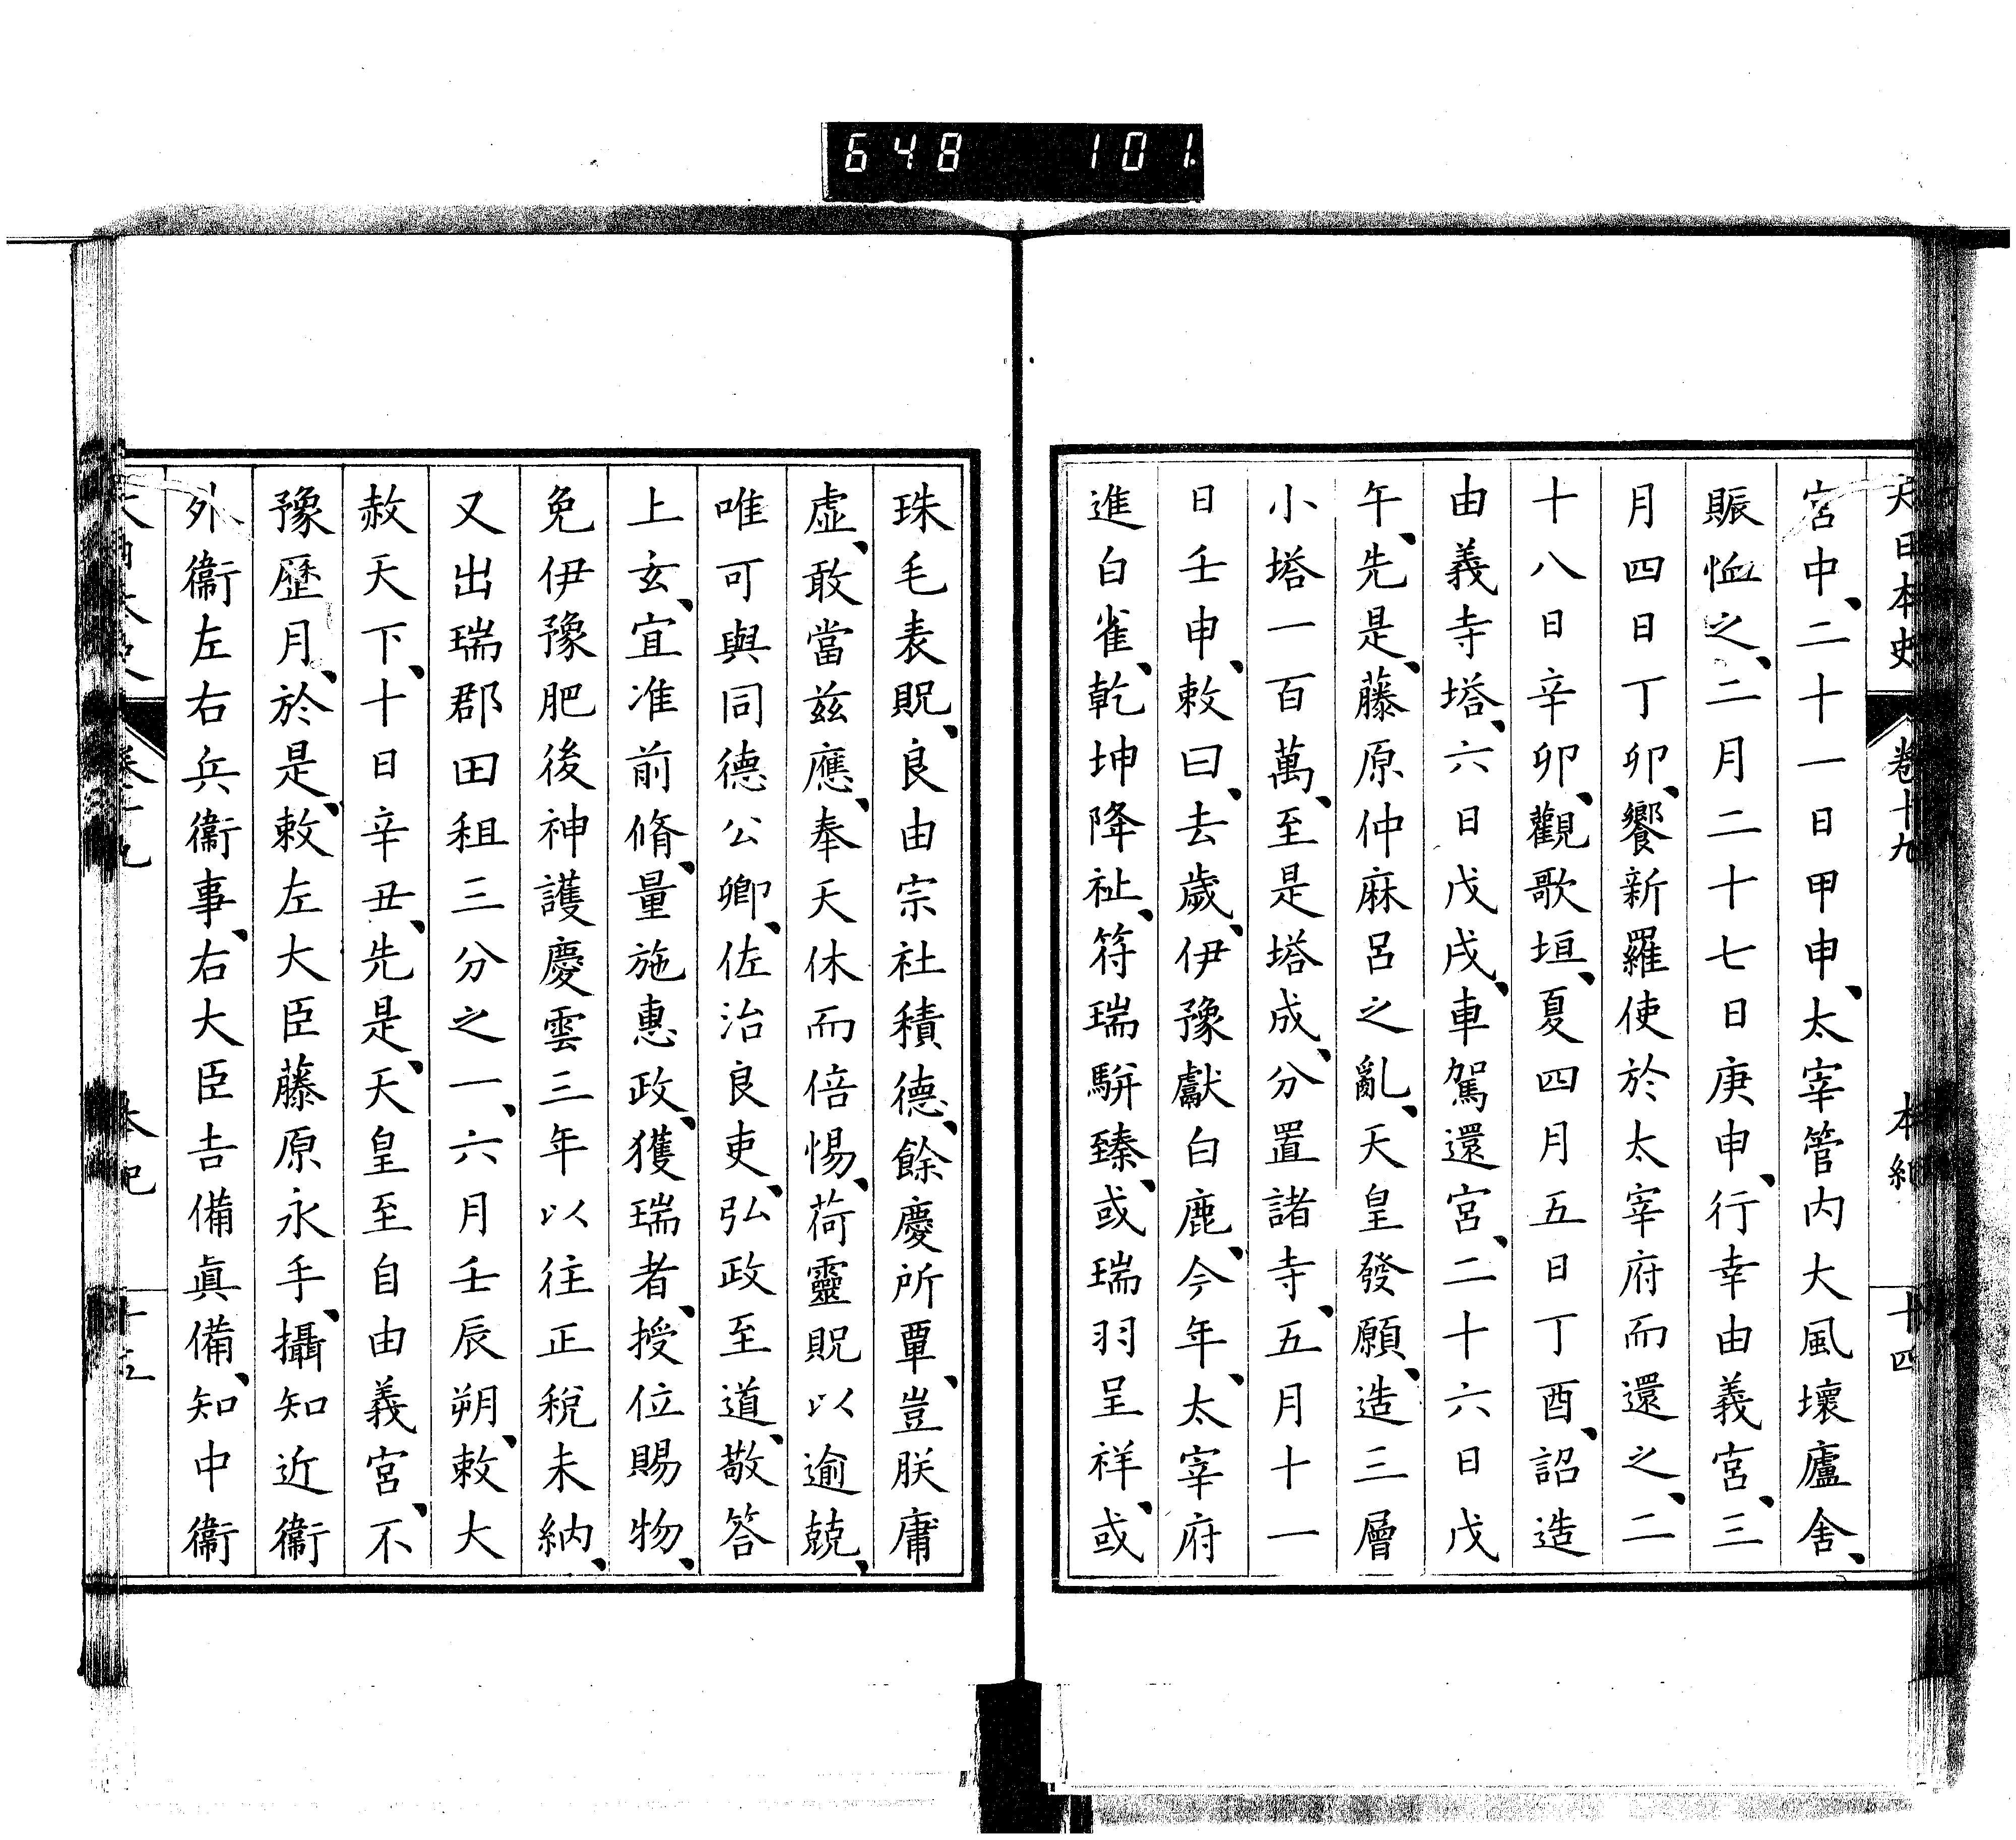 648 101.
大日本史 卷十九 本紀 十四
宮中、二十一日甲申、太宰管内大風壞廬舍、
賑恤之、二月二十七日庚申、行幸由義宮、三
月四日丁卯、饗新羅使於太宰府而還之、二
十八日辛卯、觀歌垣、夏四月五日丁酉、詔造
由義寺塔、六日戊戌、車駕還宮、二十六日戊
午、先是、藤原仲麻呂之亂、天皇發願、造三層
小塔一百萬、至是塔成、分置諸寺、五月十一
日壬申、敕曰、去歲、伊豫獻白鹿、今年、太宰府
進白雀、乾坤降祉、符瑞駢臻、或瑞羽呈祥、或
珠毛表貺、良由宗社積德、餘慶所覃、豈朕庸
虛、敢當茲應、奉天休而倍惕、荷靈貺以逾兢、
唯可與同德公卿、佐治良吏、弘政至道、敬答
上玄、宜准前脩、量施惠政、獲瑞者、授位賜物、
免伊豫肥後神護慶雲三年以往正稅未納、
又出瑞郡田租三分之一、六月壬辰朔、敕大
赦天下、十日辛丑、先是、天皇至自由義宮、不
豫歷月、於是、敕左大臣藤原永手、攝知近衞
外衞左右兵衞事、右大臣吉備眞備、知中衞
卷十九 本紀 十五